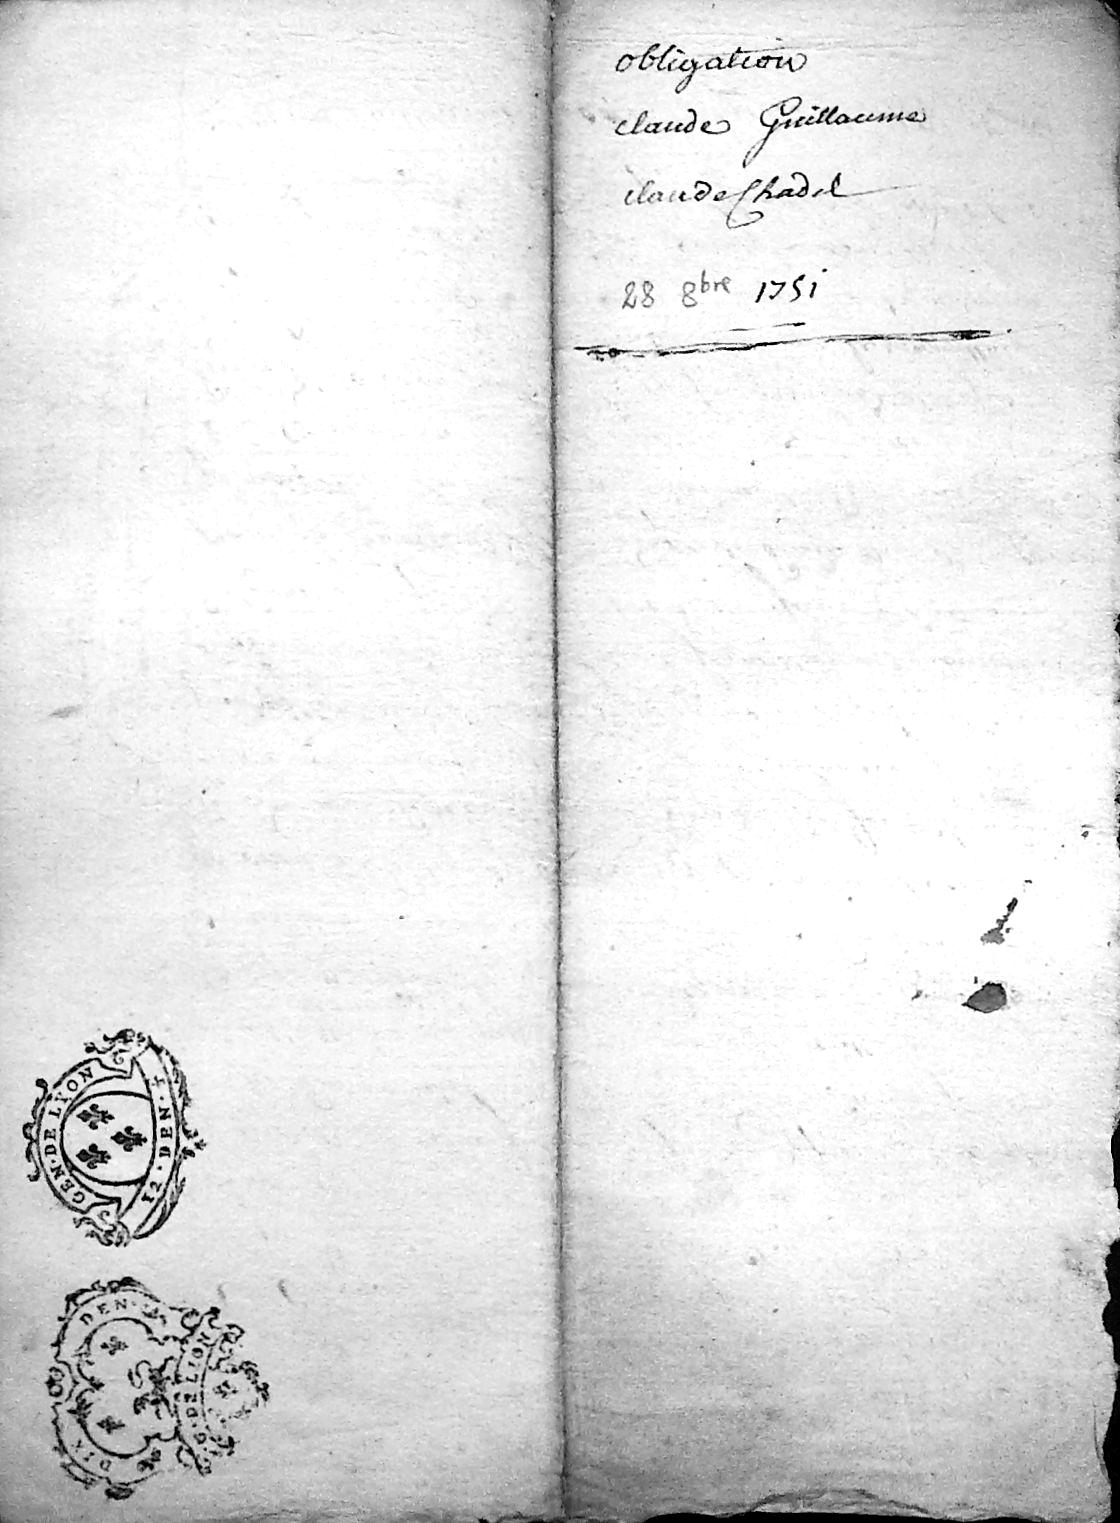 obligation
claude Guillaume
claude Chadel
28 8bre 1751
GEN · DE LYON
12 · DEN · T
DIX DEN · T
G · DE LION